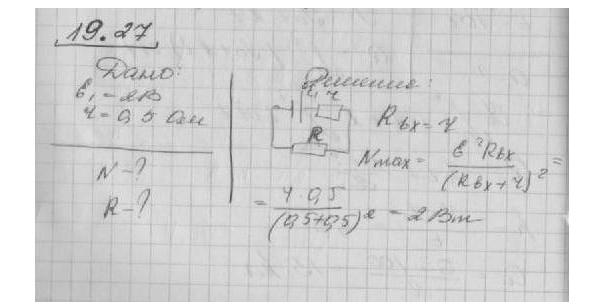 19.27
Дано:
Ɛ, = 2В
r = 0,5 Ом
N - ?
R - ?
Решение:
r
R
Rвх = r
Nmax = Ɛ²Rвх / (Rвх + r)² =
= 4 0,5 / (0,5+0,5)² = 2 Вт